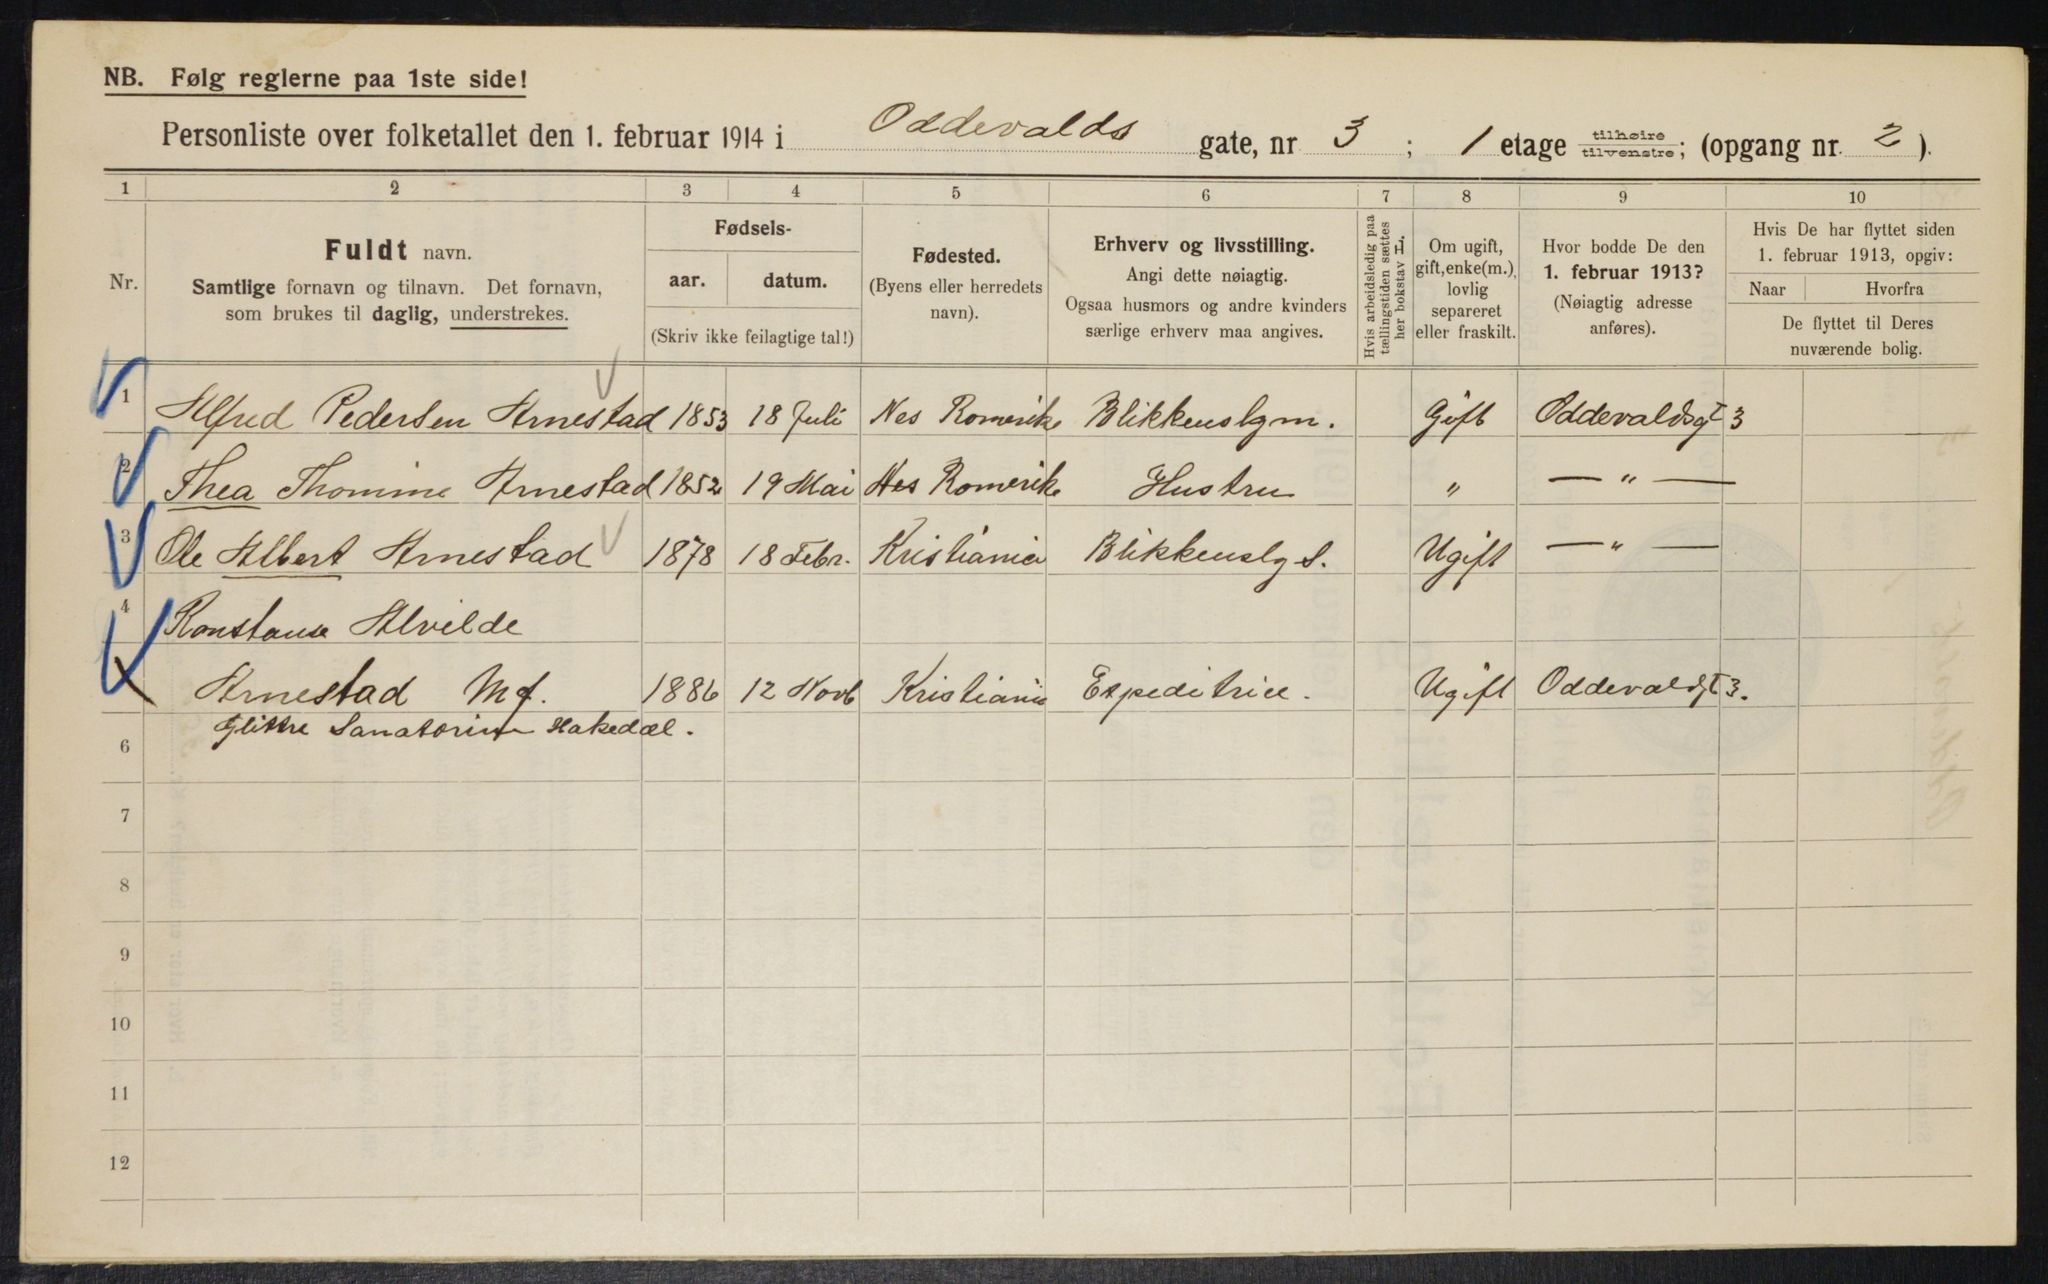 NB. Følg reglerne paa 1ste side!
Personliste over folketallet den 1. februar 1914 i Oddevalds gate, nr 3 ; 1 etage tilhøire tilvenstre; (opgang nr. 2 ).
1 2 3 4 5 6 7 8 9 10
Nr.
Fuldt navn.
Samtlige fornavn og tilnavn. Det fornavn,
som brukes til daglig, understrekes.
Fødsels-
aar. datum.
(Skriv ikke feilagtige tal!)
Fødested.
(Byens eller herredets
navn).
Erhverv og livsstilling.
Angi dette nøiagtig.
Ogsaa husmors og andre kvinders
særlige erhverv maa angives.
Hvis arbeidsledig paa
tællingstiden sættes
her bokstav L.
Om ugift,
gift, enke(m.),
lovlig
separeret
eller fraskilt.
Hvor bodde De den
1. februar 1913?
(Nøiagtig adresse
anføres).
Hvis De har flyttet siden
1. februar 1913, opgiv:
Naar Hvorfra
De flyttet til Deres
nuværende bolig.
1 Alfred Pedersen Arnestad 1853 18 Juli Nes Romerike Blikkenslgm. Gift Oddevaldsgt 3
2 Thea Thomine Arnestad 1852 19 Mai Nes Romerike Hustru " — " —
3 Ole Albert Arnestad 1878 18 Febr. Kristiania Blikkenslg S. Ugift — " —
4 Konstanse Alvilde
Arnestad Mf. 1886 12 Novb Kristiania Expeditrice. Ugift Oddevaldgt 3.
6 Glittre Sanatorium Hakedal.
7
8
9
10
11
12